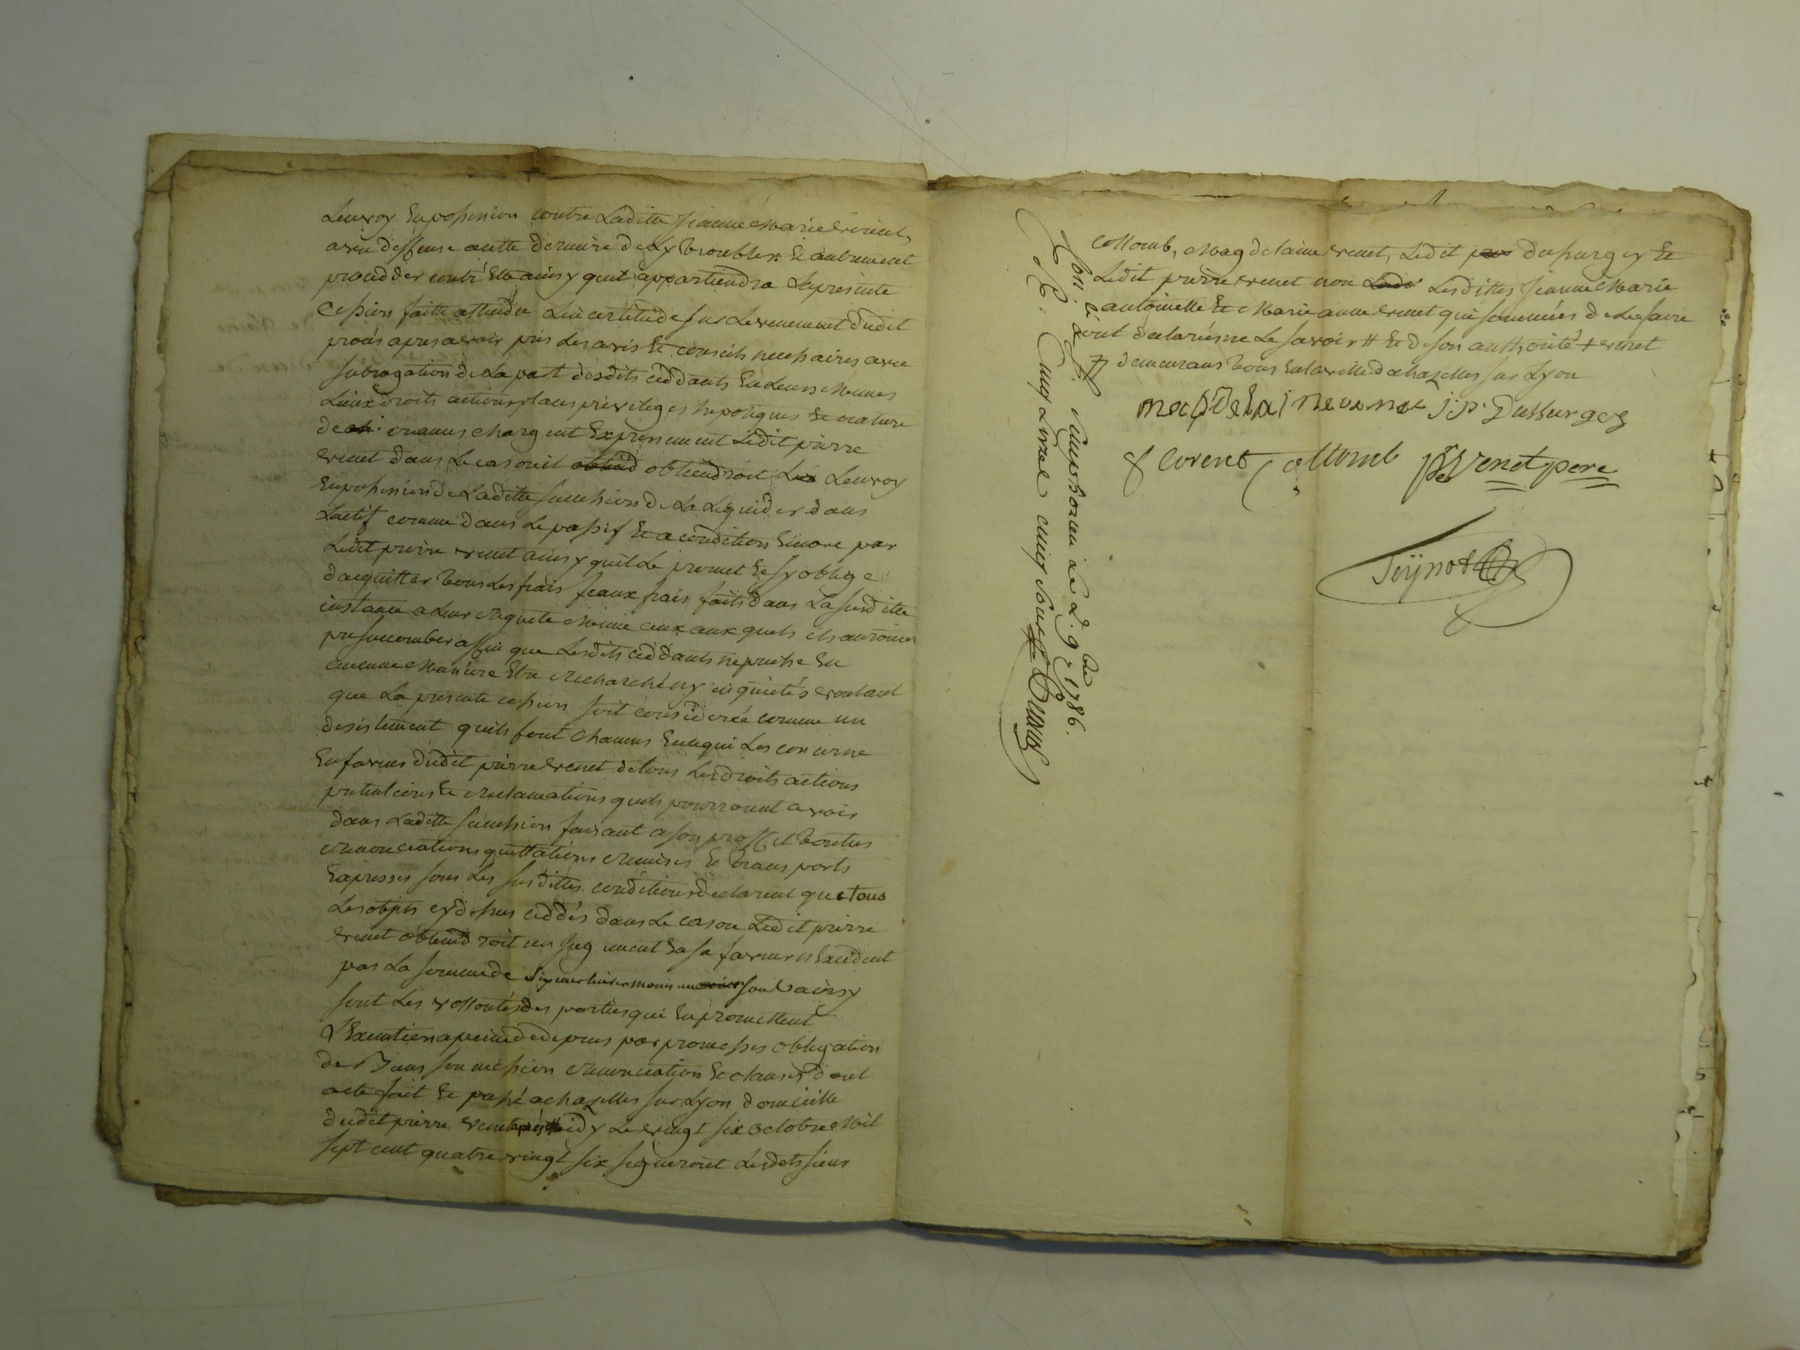 Lenvoy En possession contre Laditte jeanne Marie venet,
avec deffense a cette derniere de Ly troubler, Et autrement
proceder contr'Elle ainsy quil appartiendra La presente
Cession faitte attendu Lincertitude sur Levenement dudit
procés apres avoir pris Les avis Et conseils necessaires avec
subrogation de La part desdits ceddants En Leurs Memes
Lieux droits actions places privileges hypoteques Et nature
de creances chargent Expressement Ledit pierre
venet dans Le cas ou il obtiendroit Lenvoy
En possession de Laditte succession de La Liquider dans
Lactif comme dans Le passif Et a condition Encore par
Ledit pierre venet ainsy quil Le promet Et sy oblige
dacquitter tous Les frais feaux frais faits dans La susditte
instance a Leur requete Meme ceux aux quels ils auroient
pu succomber affin que Lesdits ceddants ne puisse En
aucune Maniere Etre recharchés ny inquietés voulant
que La presente cession soit considerée comme un
desistement quils font chacuns En ce qui Les concerne
En faveur dudit pierre venet de tous Les droits actions
pretentions Et reclamations quils pourroient avoir
dans Laditte succession faisant a son proffit toutes
renonciations quittations remises Et transports
Expresses sous Les susdittes conditions declarent que tous
Les objets cy dessus ceddés dans Le cas ou Ledit pierre
venet obtiendroit un jugement En sa faveur n'Excedent
pas La somme de six cent livres ainsy
sont Les vollontés des parties qui En promettent
L'Execution a peine de depens par promesses obligation
de Biens soumission renonciation Et clauses dont
acte fait Et passé a chazelles sur Lyon domicille
dudit pierre venet après Midy Le vingt six octobre Mil
sept cent quatre vingt six signeront Lesdits sieurs
collomb, Magdelaine venet, Ledit dussurgey Et
Ledit pierre venet non Lesdittes jeanne Marie
antoinette Et Marie anne venet qui sommées de Le faire
ont declaré ne Le savoir # Et de son authorité + venet
# demeurans tous En La ville de chazelles sur Lyon
magdelaine venet j: p. Dussurgey
Corent collomb pre Venet pere
Con. lé a St. Simphorien Le d. 9. bre 1786.
R. Cinq Livres cinq sous